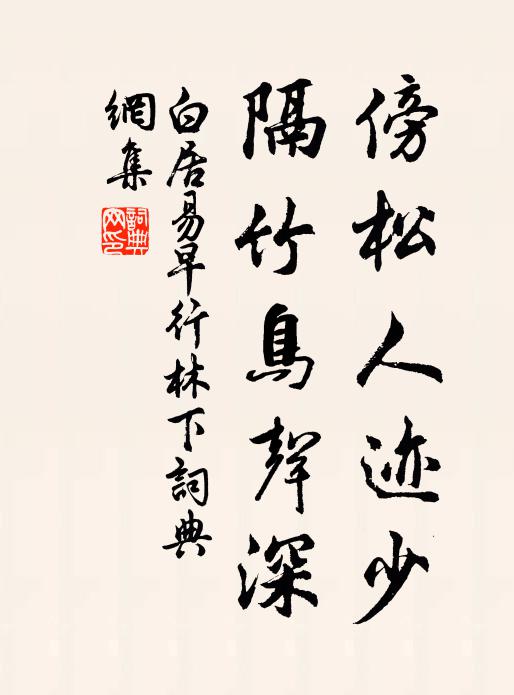 傍松人迹少
隔竹鳥聲深
白居易早行林下詞典
網集
詞典網印